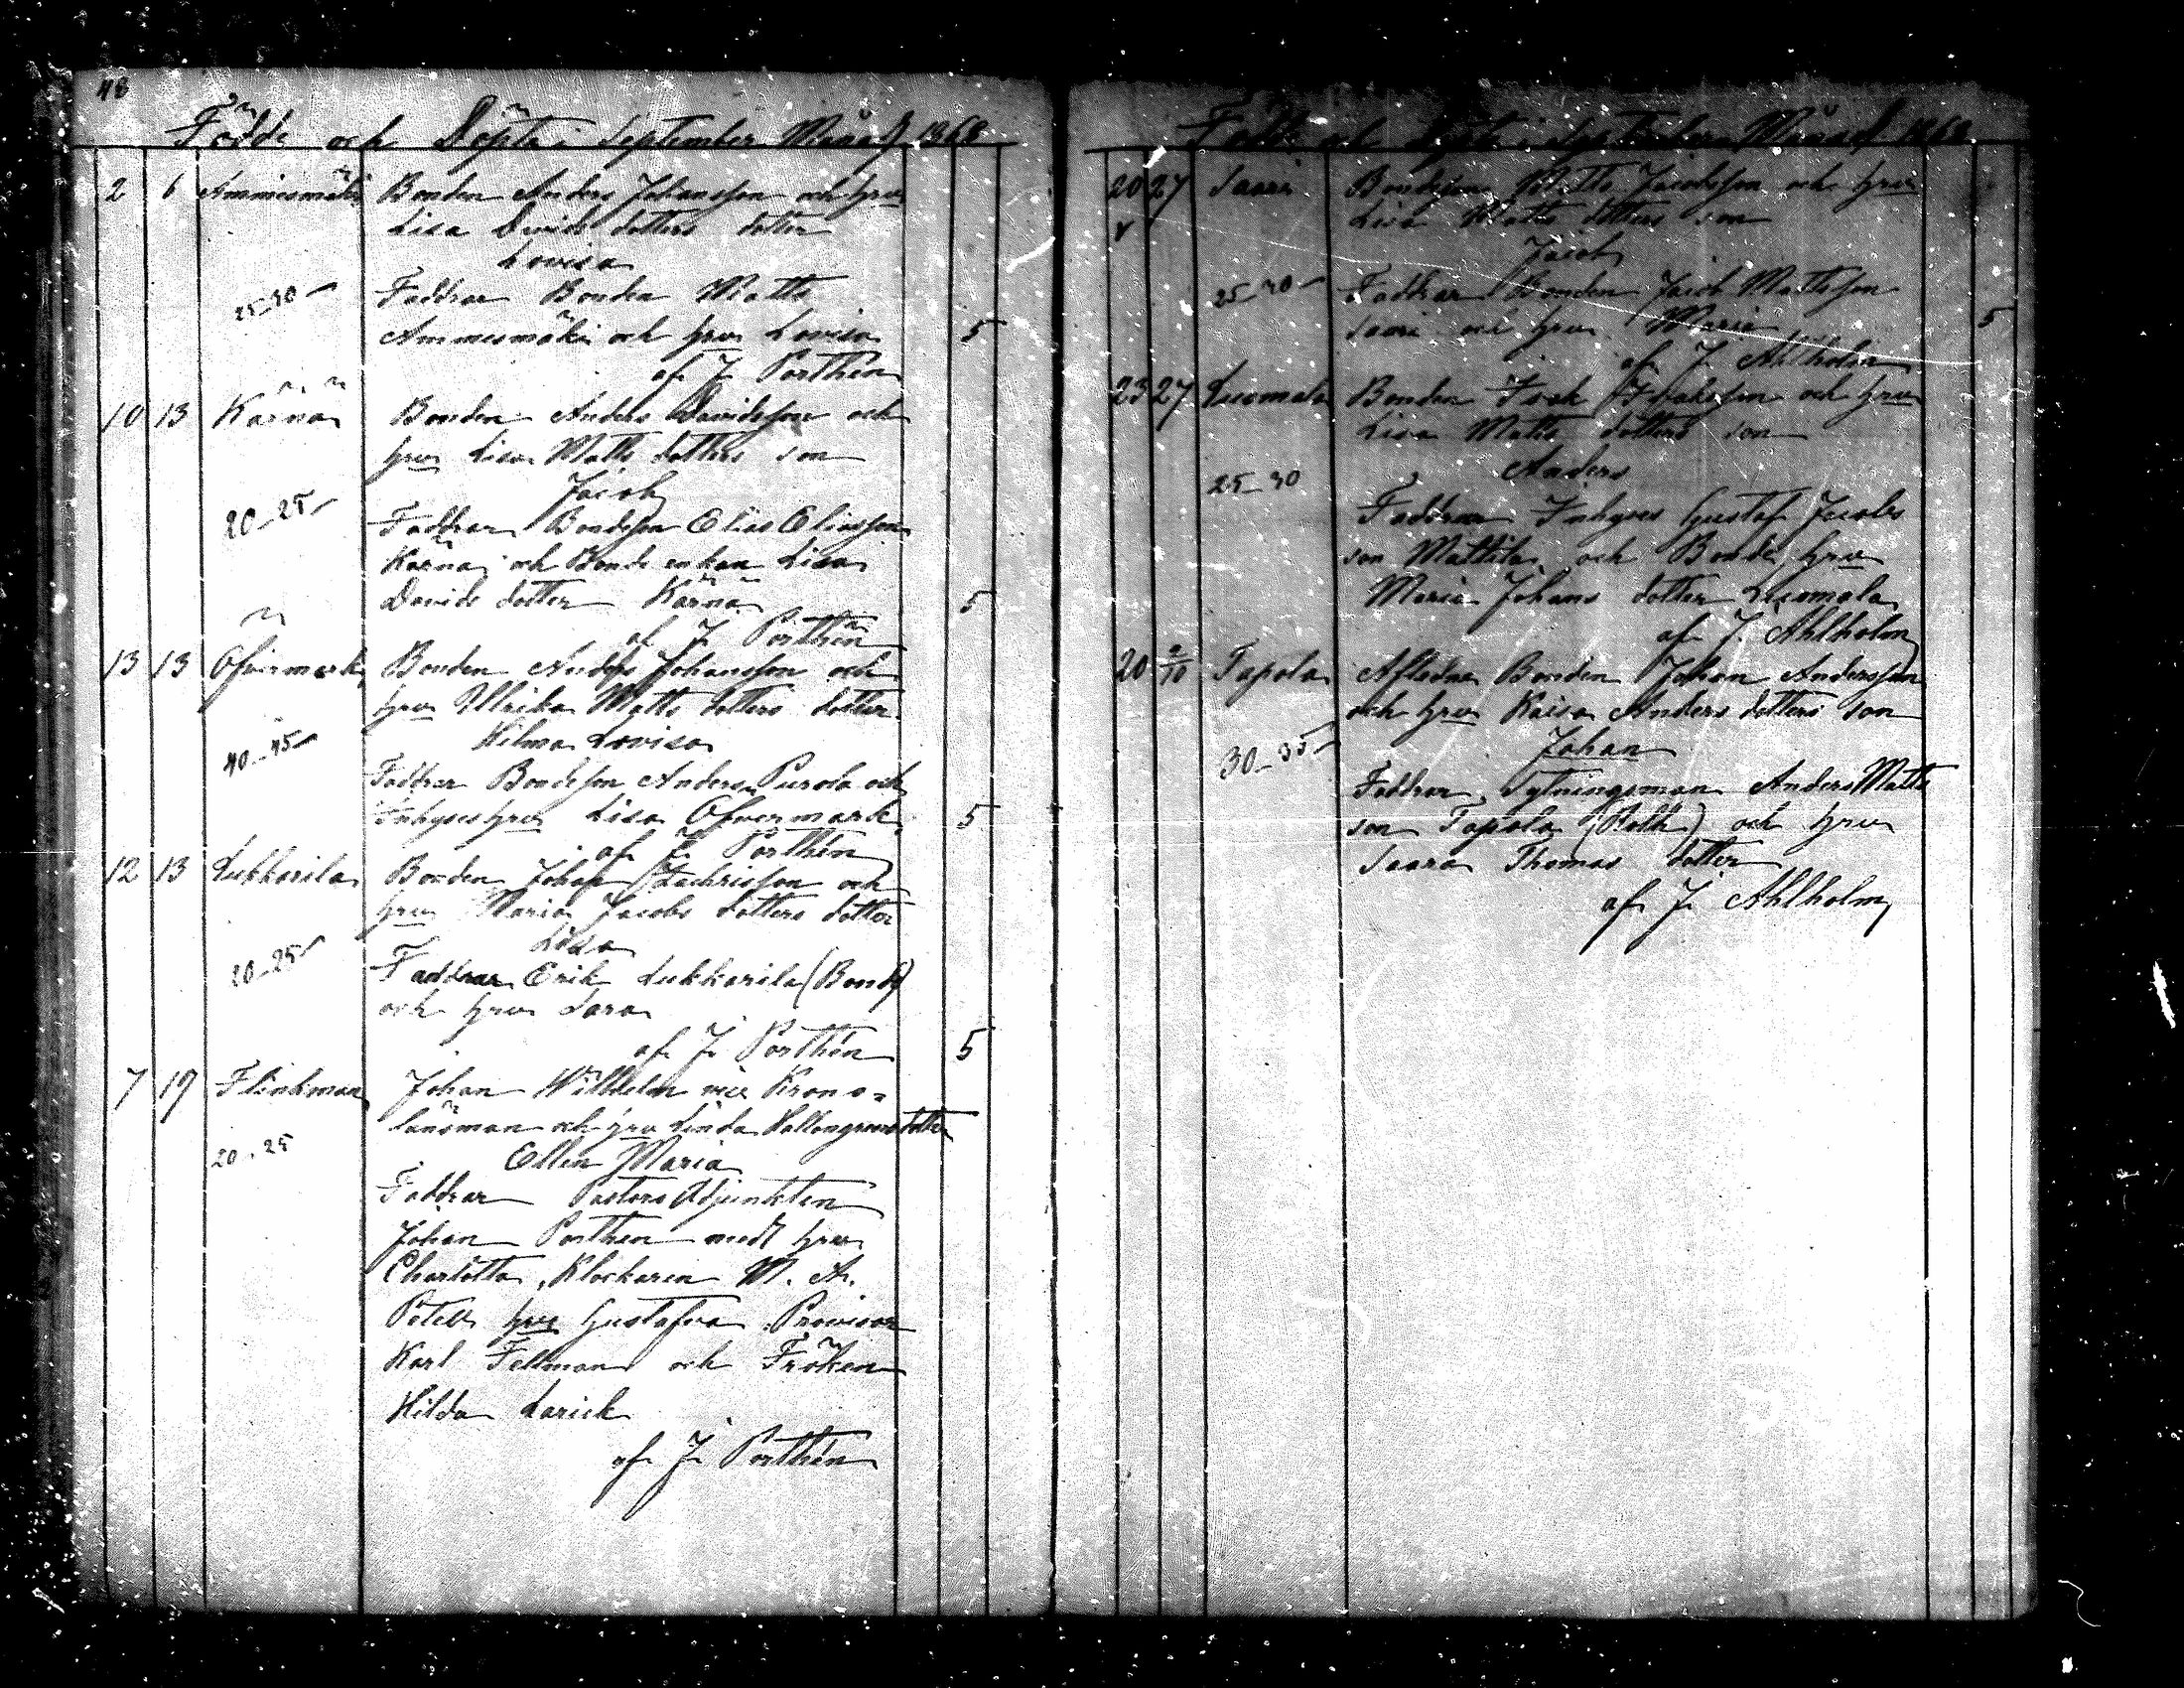 48
Födde och Döpte i September Månad 1868
2 6 Ammesmäki Bonden Anders Johansson och hru
Lisa Davids dotters dotter
Lovisa
25-30 Faddrar Bonden Matts
Ammesmäki och hru Lovisa 5
af J. Porthén
10 13 Kärnä Bonden Anders Davidsson och
hru Lisa Matts dotters son
Jacob
20-25 Faddrar Bondeson Elias Eliasson
Kärnä och Bonde enkan Lisa
Davids dotter Kärnä 5
af J. Porthén
13 13 Öfvermark Bonden Anders Johansson och
hru Ulrika Matts dotters dotter
Hilma Lovisa
40-45 Faddrar Bondeson Anders Purola och
Inhyses hru Lisa Öfvermark 5
af J. Porthén
12 13 Lukkarila Bonden Johan Zachrisson och
hru Maria Jacobs dotters dotter
Lisa
20-25 Faddrar Erik Lukkarila (Bonde)
och hru Sara
af J. Porthén 5
7 19 Flinkman Johan Wilhelm vice Krono-
länsman och hru Linda dotter
20-25 Ellen Maria
Faddrar Pastors Adjunkten
Johan Porthen med hru
Charlotta, Klockaren M. A.
hru Gustafva Provisor
Karl Fellman och Fröken
Hilda
af J. Porthén
Födde och Döpte i September Månad 1868
20 27 Saari Bondeson Matts Jacobsson och hru
Lisa Matts dotters son
Jacob
25-30 Faddrar Bonden Jacob Mattsson
Saari och hru Maria 5
af J. Ahlholm
23 27 Luomala Bonden Isak Isaksson och hru
Lisa Matts dotters son
Anders
25-30
Faddrar Inhyses Gustaf Jacobs
son Mattila och Bonde hru
Maria Johans dotter Luomala
af J. Ahlholm
20 2/10 Tapola Afledne Bonden Johan Andersson
och hru Kaisa Anders dotters son
30-35 Johan
Faddrar Sytningsman Anders Matts
son Tapola och hru
Saara Thomas dotter
af J. Ahlholm